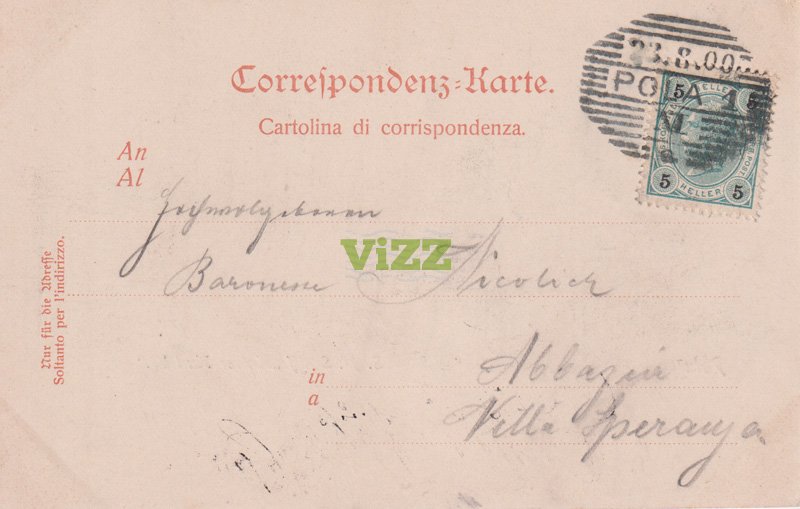 23.8.00
POLA 1
5 HELLER 5
5 HELLER 5
Correſpondenz-Karte.
Cartolina di corrispondenza.
An
Al
Hochwolgeboren
ViZZ
Baronesse Nicolich
in
a
Abbazia
Villa Speranza
Nur für die Adreſſe
Soltanto per l'indirizzo.